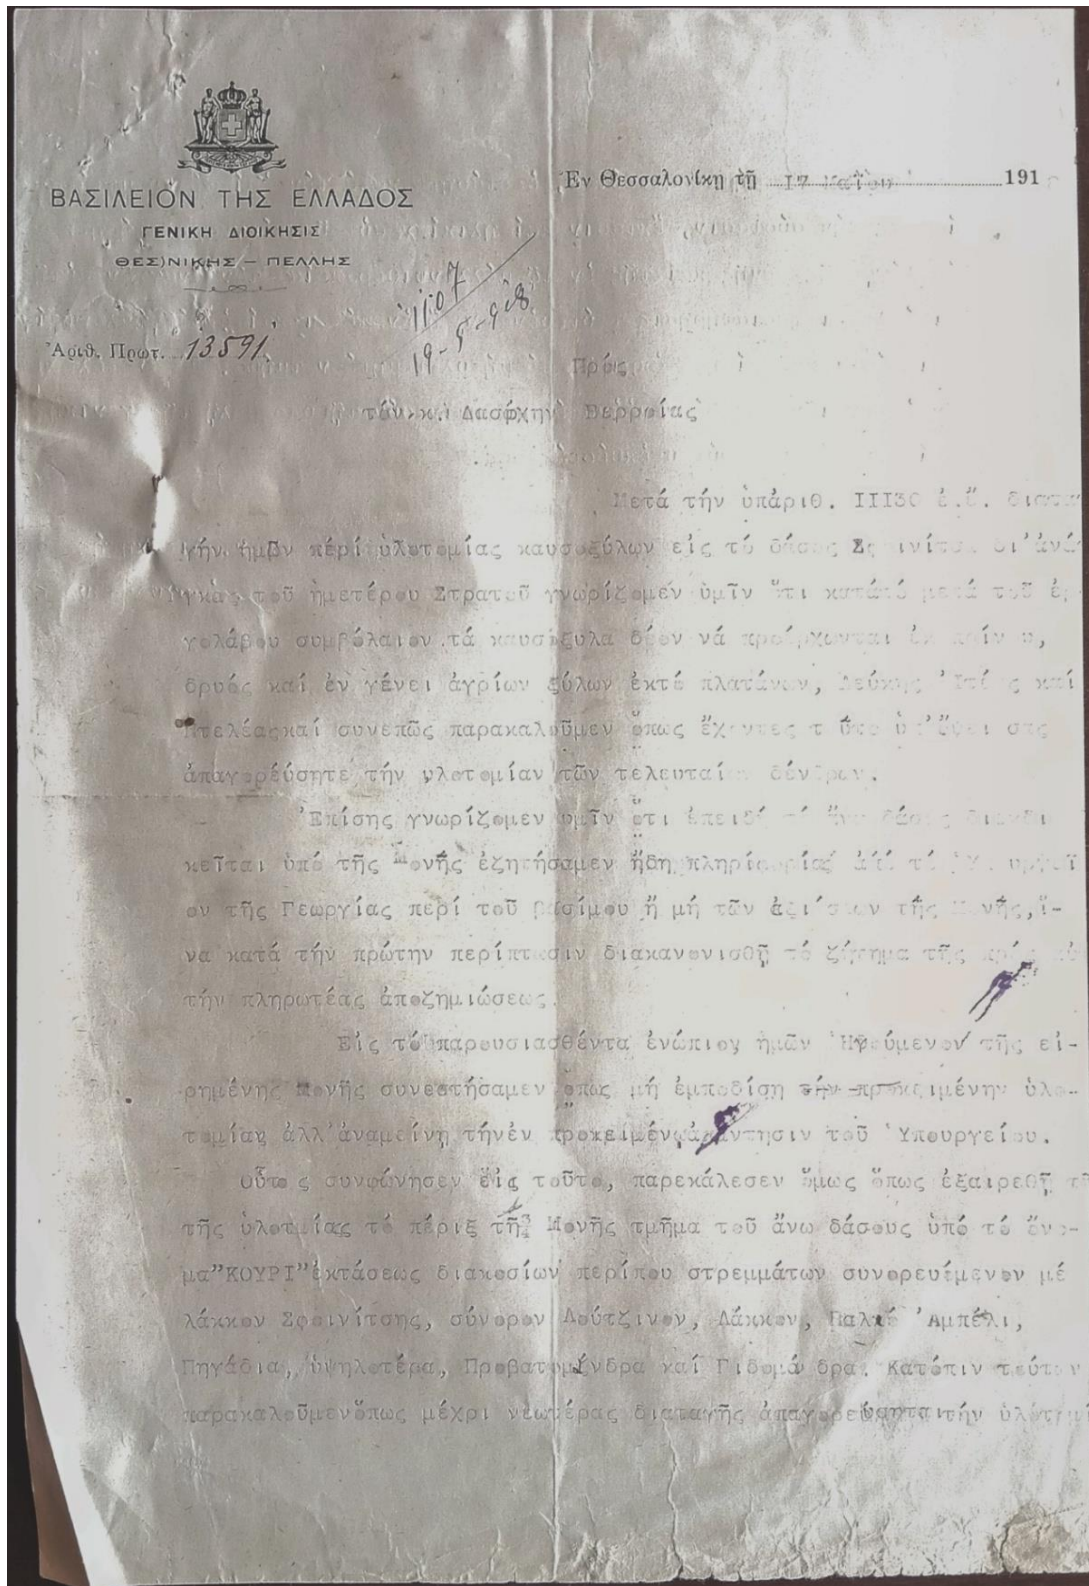 ΒΑΣΙΛΕΙΟΝ ΤΗΣ ΕΛΛΑΔΟΣ
ΓΕΝΙΚΗ ΔΙΟΙΚΗΣΙΣ
ΘΕΣ)ΝΙΚΗΣ – ΠΕΛΛΗΣ
Ἀριθ. Πρωτ. 13591
1107
19-5-918
Ἐν Θεσσαλονίκῃ τῇ 17 Μαΐου 191
Πρός
τόν κ. Δασάρχην Βερροίας
Μετά τήν ὑπάριθ. ΙΙΙ30 ἐ.ἔ. διατα
γήν ἡμῶν περί ὑλοτομίας καυσοξύλων εἰς τό δάσος Σφοινίτσα δι'ἀνά
γκας τοῦ ἡμετέρου Στρατοῦ γνωρίζομεν ὑμῖν ὅτι κατάτό μετά τοῦ ἐρ
γολάβου συμβόλαιον τά καυσόξυλα δέον νά προέρχωνται ἐκ
δρυός καί ἐν γένει ἀγρίων ξύλων ἐκτό πλατάνων, Λεύκης Ἰτέας καί
Πτελέαςκαί συνεπῶς παρακαλοῦμεν ὅπως ἔχοντες τοῦτο ὑπ'ὄψει σας
ἀπαγορεύσητε τήν υλοτομίαν τῶν τελευταίων δένδρων.
Ἐπίσης γνωρίζομεν ὑμῖν ὅτι ἐπειδή τό ἄνω δάσος διεκδι
κεῖται ὑπό τῆς Μονῆς ἐζητήσαμεν ἤδη πληροφορίας ἀπό τό Ὑπουργεῖ
ον τῆς Γεωργίας περί τοῦ βασίμου ἤ μή τῶν ἀξιώσεων τῆς Μονῆς, ἵ-
να κατά τήν πρώτην περίπτωσιν διακανονισθῇ τό ζήτημα τῆς πρός αὐ
τήν πληρωτέας ἀποζημιώσεως.
Εἰς τό παρουσιασθέντα ἐνώπιον ἡμῶν Ἡγούμενον τῆς εἰ-
ρημένης Μονῆς συνεστήσαμεν ὅπως μή ἐμποδίσῃ τήν προκειμένην ὑλο-
τομίαν ἀλλ'ἀναμείνῃ τήνἐν προκειμένῳἀπάντησιν τοῦ Ὑπουργείου.
Οὗτος συνφώνησεν εἰς τοῦτο, παρεκάλεσεν ὅμως ὅπως ἐξαιρεθῇ τῆ
τῆς ὑλοτμίας τό πέριξ τῆς Μονῆς τμῆμα τοῦ ἄνω δάσους ὑπό τό ὄνο-
μα"ΚΟΥΡΙ"ἐκτάσεως διακοσίων περίπου στρεμμάτων συνορευόμενον μέ
λάκκον Σφοινίτσης, σύνορον Λούτζινον, Λάκκον, Παλιό Ἀμπέλι,
Πηγάδια, ὑψηλοτέρα, Προβατομάνδρα καί Γιδομάνδρα. Κατόπιν τούτων
παρακαλοῦμενὅπως μέχρι νεωτέρας διαταγῆς ἀπαγορεύσητε τήν ὑλοτομί